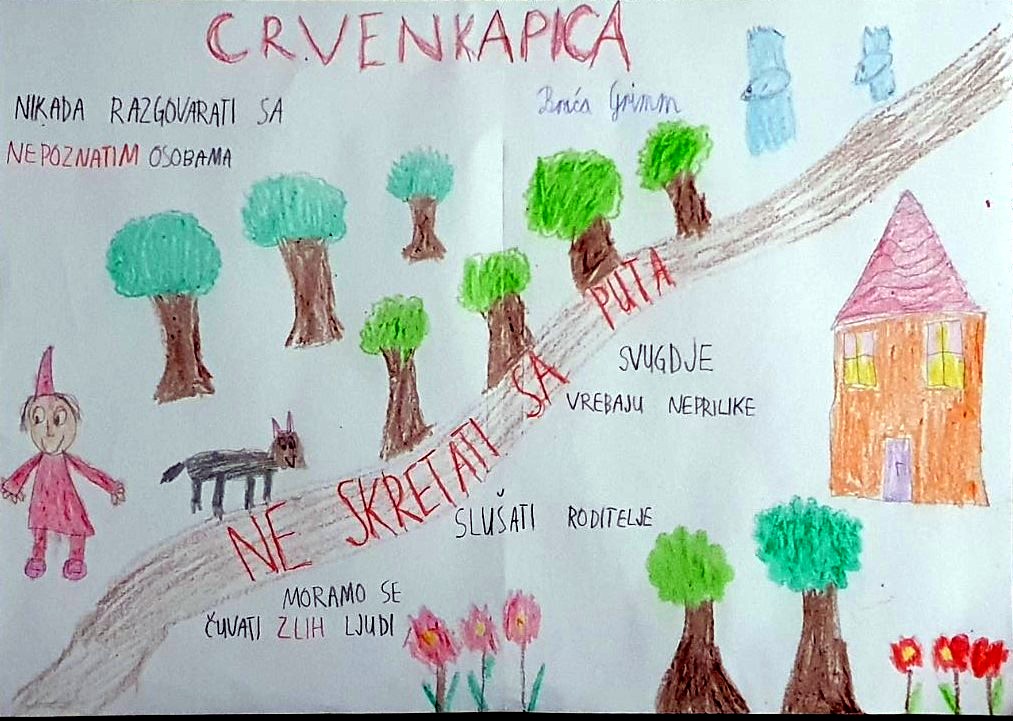 CRVENKAPICA
Braća Grimm
NIKADA RAZGOVARATI SA
NEPOZNATIM OSOBAMA
NE SKRETATI SA PUTA
SVUGDJE
VREBAJU NEPRILIKE
SLUŠATI RODITELJE
MORAMO SE
ČUVATI ZLIH LJUDI